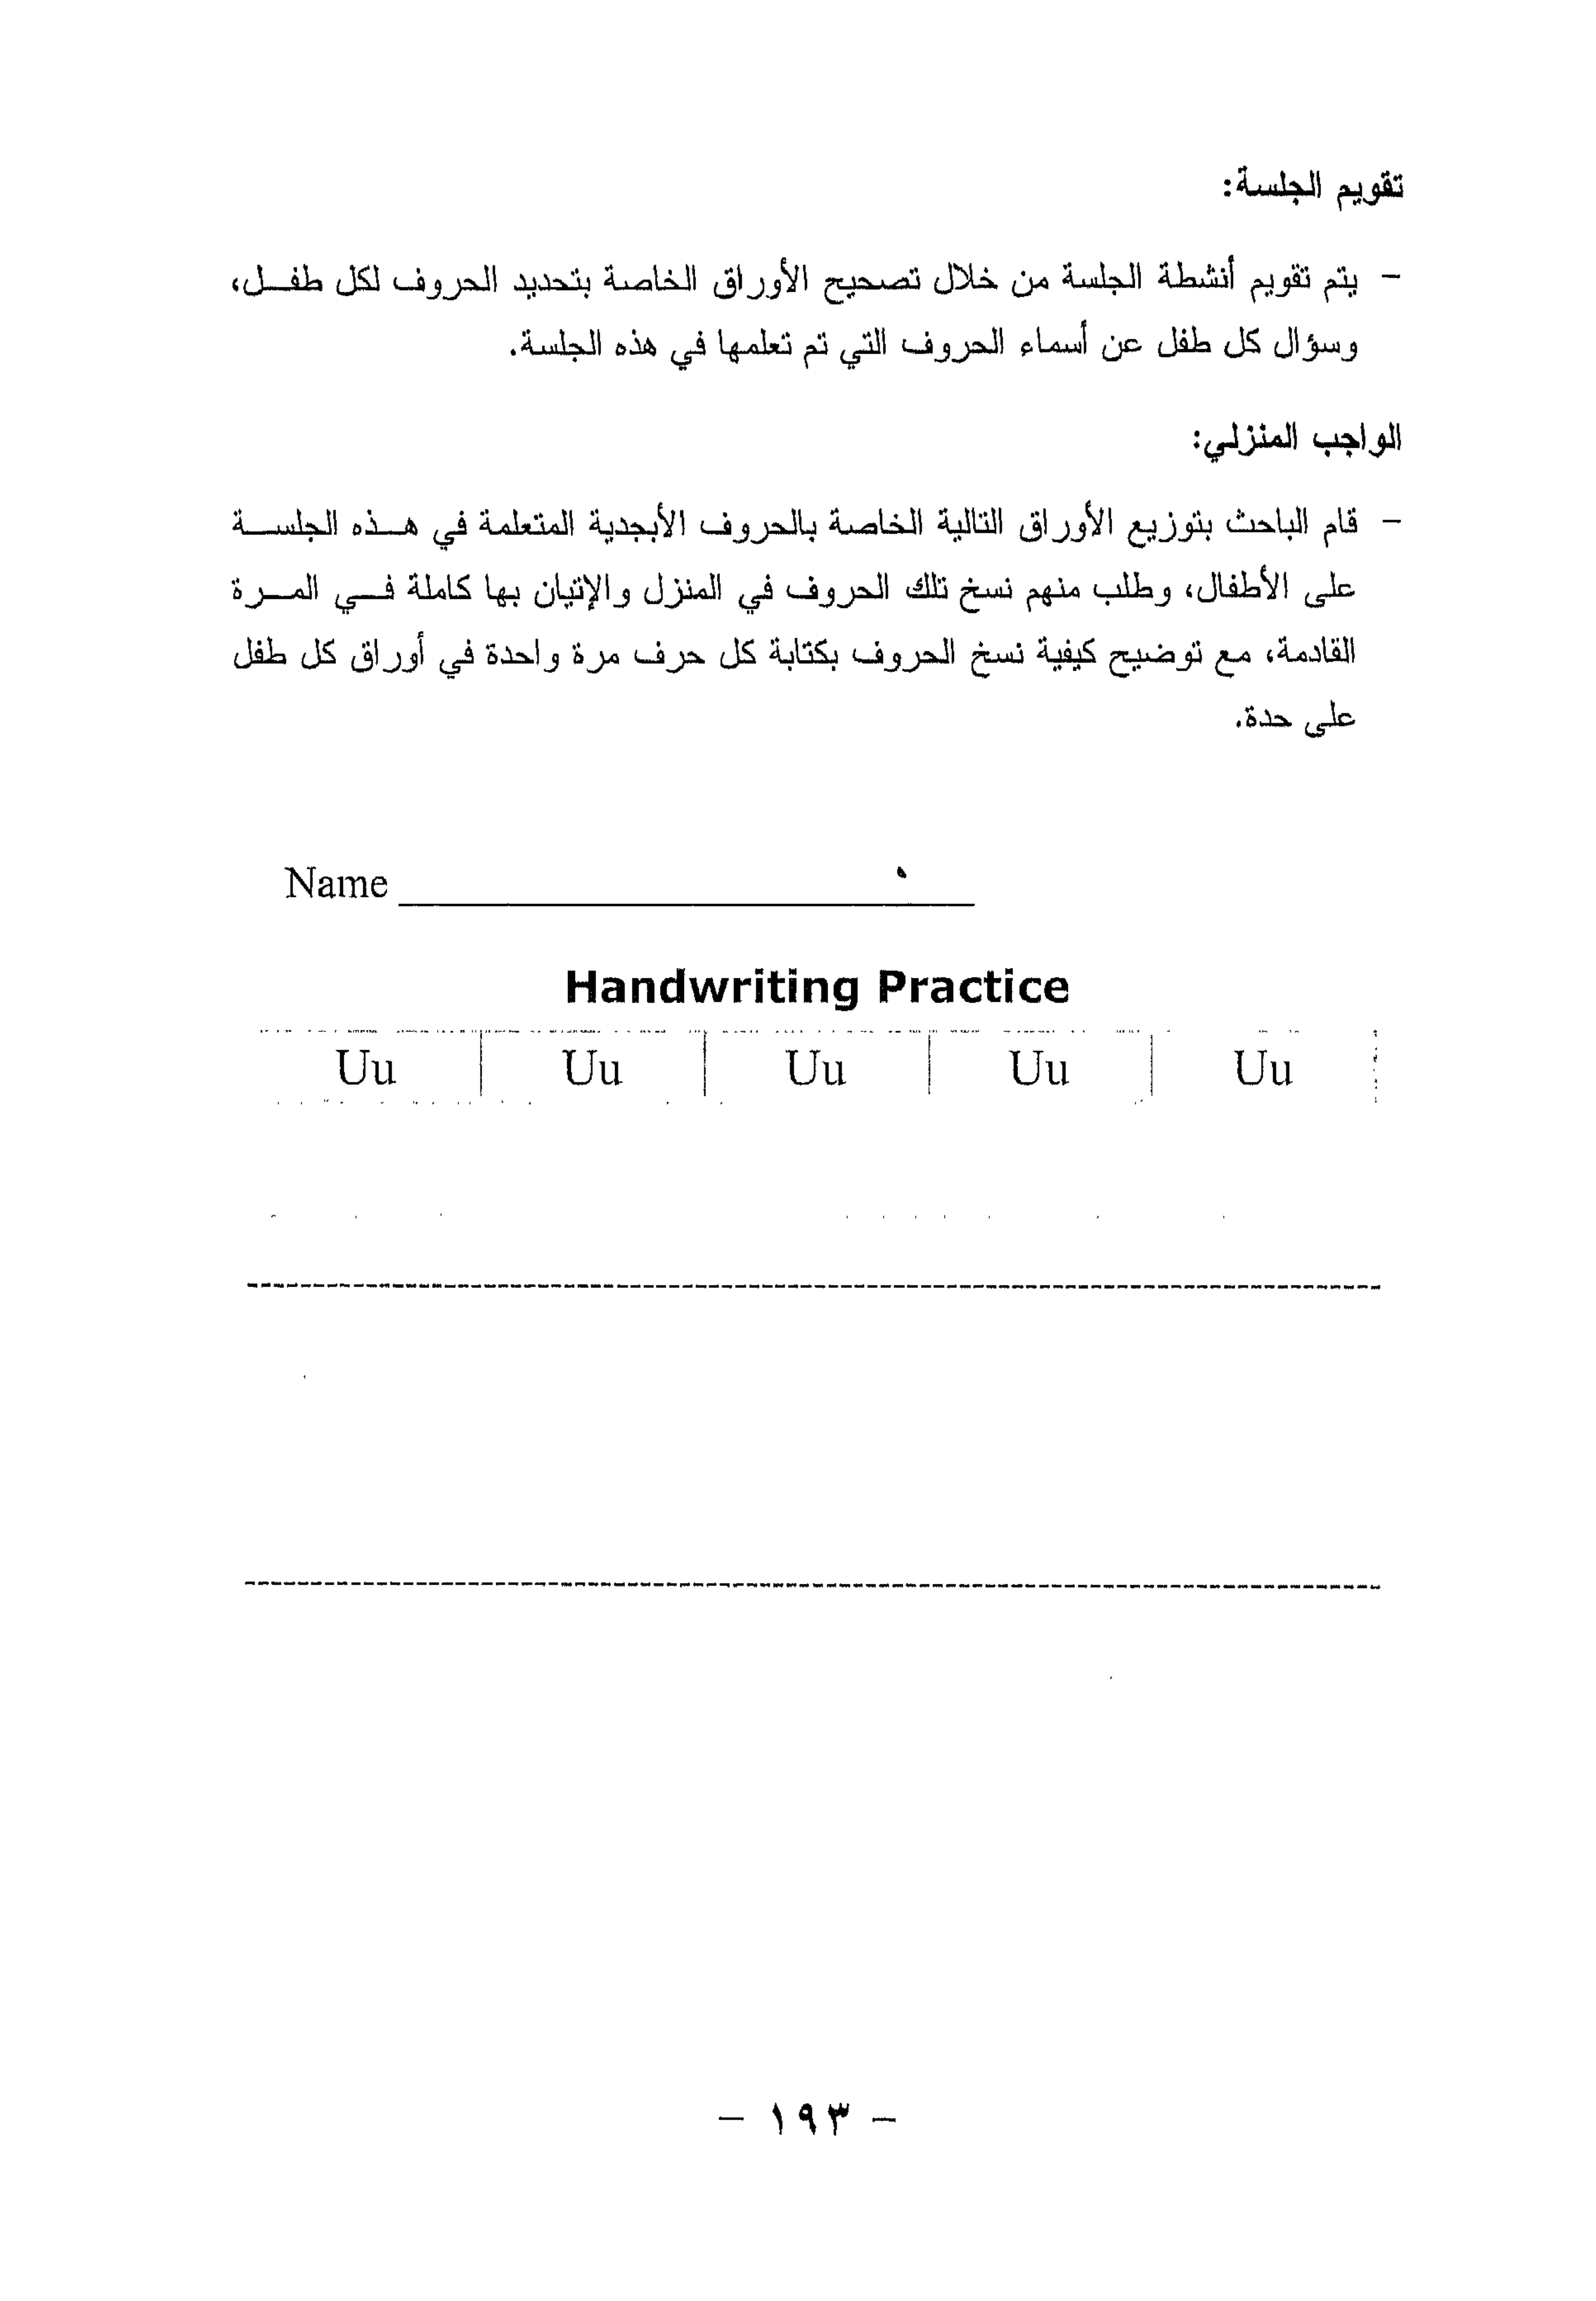 تقويم الجلسة:
- يتم تقويم أنشطة الجلسة من خلال تصحيح الأوراق الخاصة بتحديد الحروف لكل طفل،
وسؤال كل طفل عن أسماء الحروف التي تم تعلمها في هذه الجلسة.
الواجب المنزلي:
- قام الباحث بتوزيع الأوراق التالية الخاصة بالحروف الأبجدية المتعلمة في هذه الجلسة
على الأطفال، وطلب منهم نسخ تلك الحروف في المنزل والإتيان بها كاملة في المرة
القادمة، مع توضيح كيفية نسخ الحروف بكتابة كل حرف مرة واحدة في أوراق كل طفل
على حدة.
Name
Handwriting Practice
Uu Uu Uu Uu Uu
- ١٩٣ -